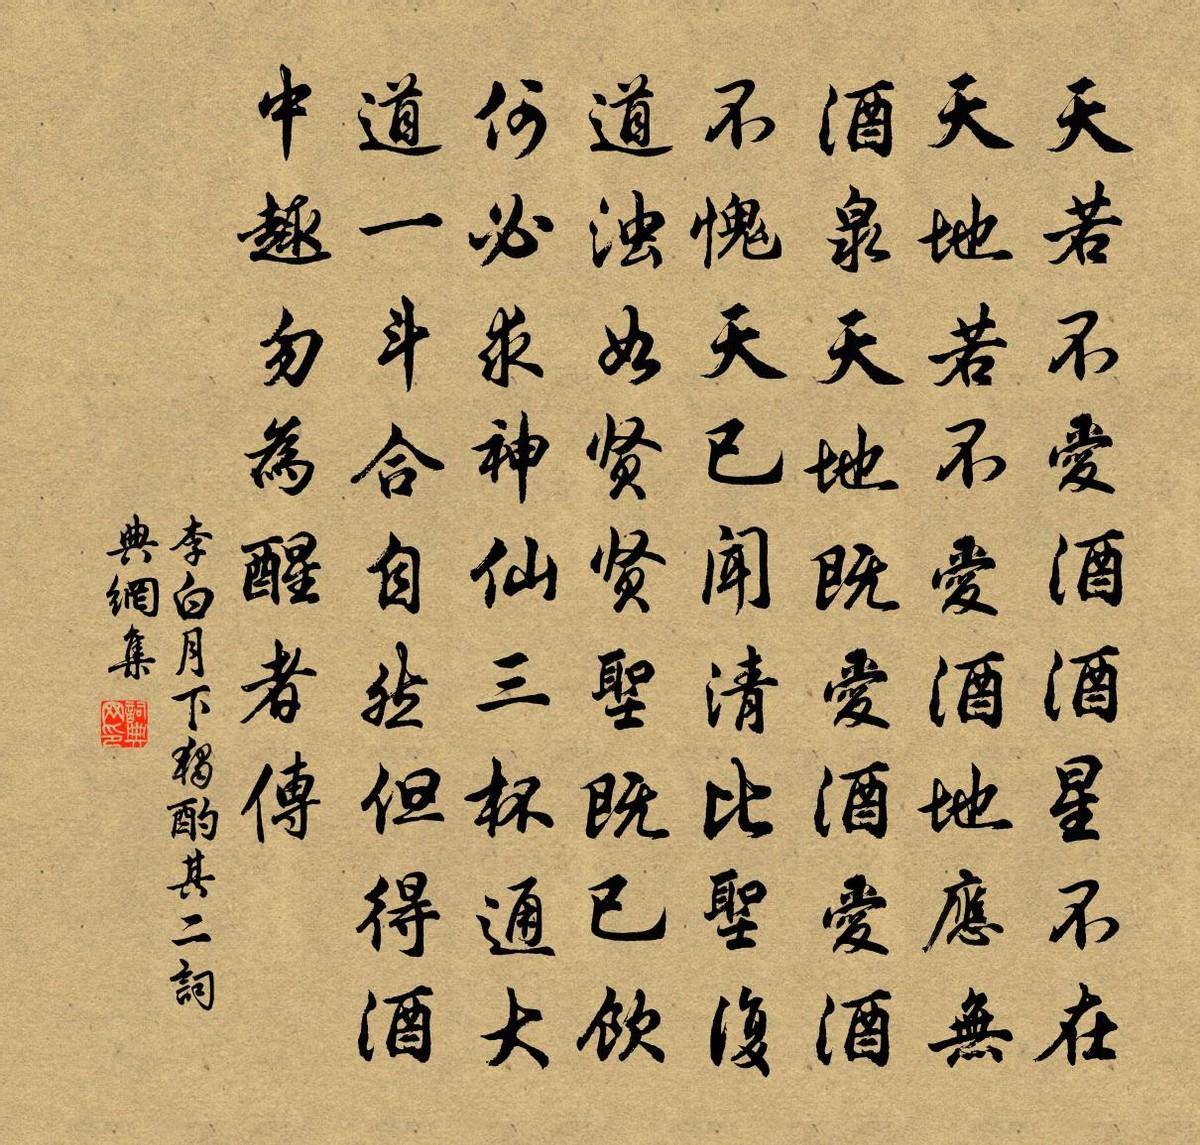 天若不愛酒酒星不在
天地若不愛酒地應無
酒泉天地既愛酒愛酒
不愧天已聞清比聖復
道浊如贤贤聖既已飲
何必求神仙三杯通大
道一斗合自然但得酒
中趣勿為醒者傳
李白月下獨酌其二詞
典網集
詞典网印